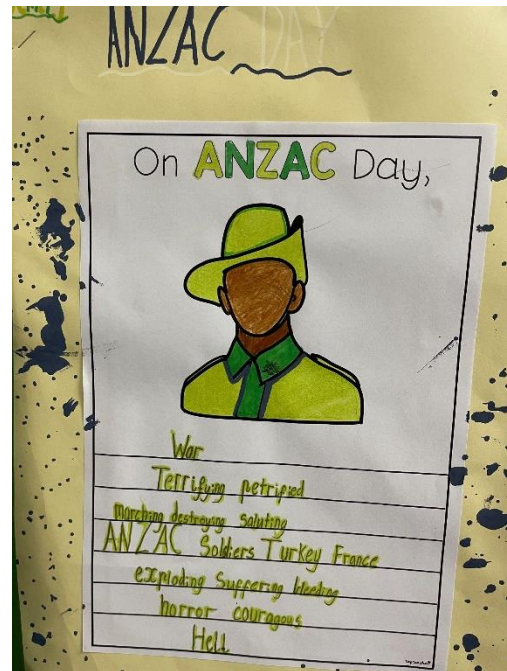 ANZAC DAY
On ANZAC Day,
War
Terrifying petrified
marching destroysng saluting
ANZAC Soldiers Turkey France
exploding suffering bleeding
horror couragous
Hell